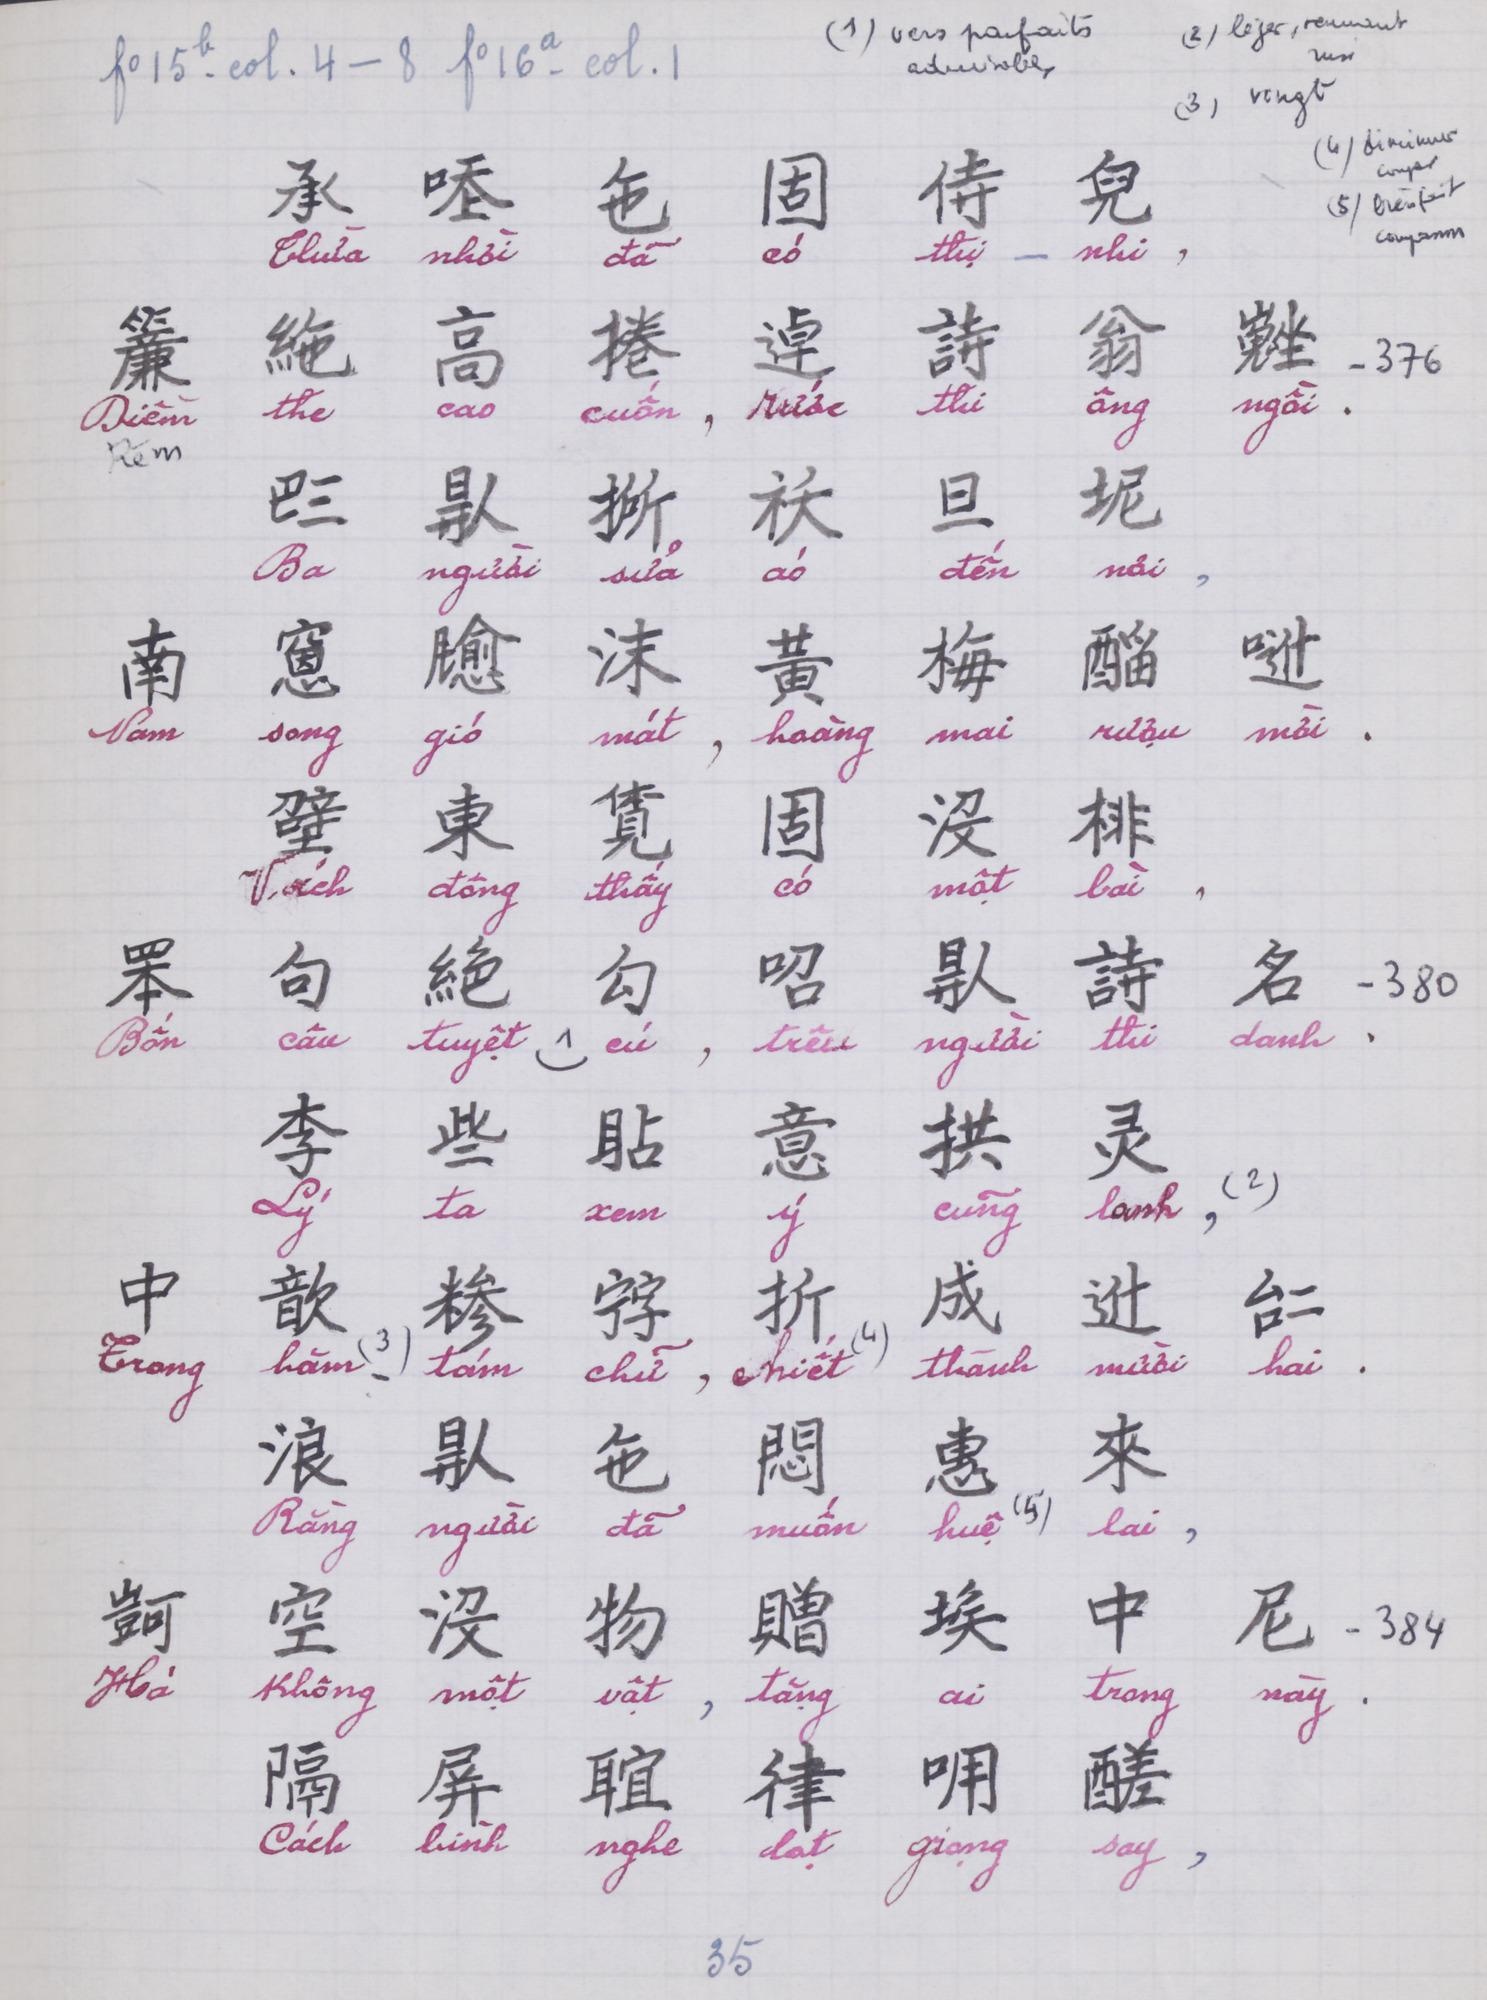 fº 15ᵇ - col. 4 – 8 fº 16ᵃ - col. 1
(1) vers parfaits
admirables
(2) léger, remuant
rusé
(3) vingt
(4) diminuer
couper
(5)
承 唑 㐌 固 侍 兒
Thừa nhời đã có thị – nhi,
簾 絁 高 捲 逴 詩 翁 𡾵 - 376
Diềm the cao cuốn, rước thi ông ngồi.
Rèm
𠀧 𠊛 𢯢 袄 旦 坭
Ba người sửa áo đến nơi,
南 窓 𩙌 沫 黃 梅 𨢇 𠶆
Nam song gió mát, hoàng mai rượu mời.
壁 東 覓 固 沒 排
Vách đông thấy có một bài,
𦊚 句 絶 勾 㕸 𠊛 詩 名 - 380
Bốn câu tuyệt (1) cú, trêu người thi danh.
李 些 貼 意 拱 灵
Lý ta xem ý cũng lanh, (2)
中 歆 糝 𡨸 折 成 𨒒 𠄩
Trong hăm (3) - tám chữ, chiết (4) thành mười hai.
浪 𠊛 㐌 悶 惠 來
Rằng người đã muốn huệ (5) lai,
𠹚 空 沒 物 贈 埃 中 尼 - 384
Há không một vật, tặng ai trong này.
隔 屏 𦖑 律 𠰃 醝
Cách bình nghe dạt giọng say,
35